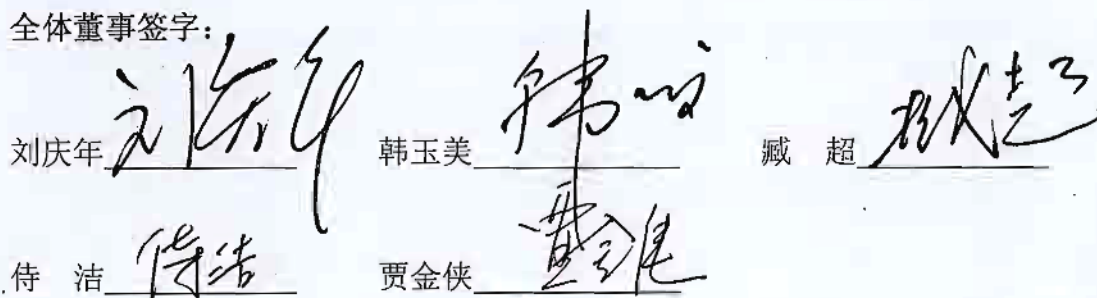 全体董事签字：
刘庆年 刘庆年 韩玉美 臧 超 臧超
侍 洁 侍洁 贾金侠